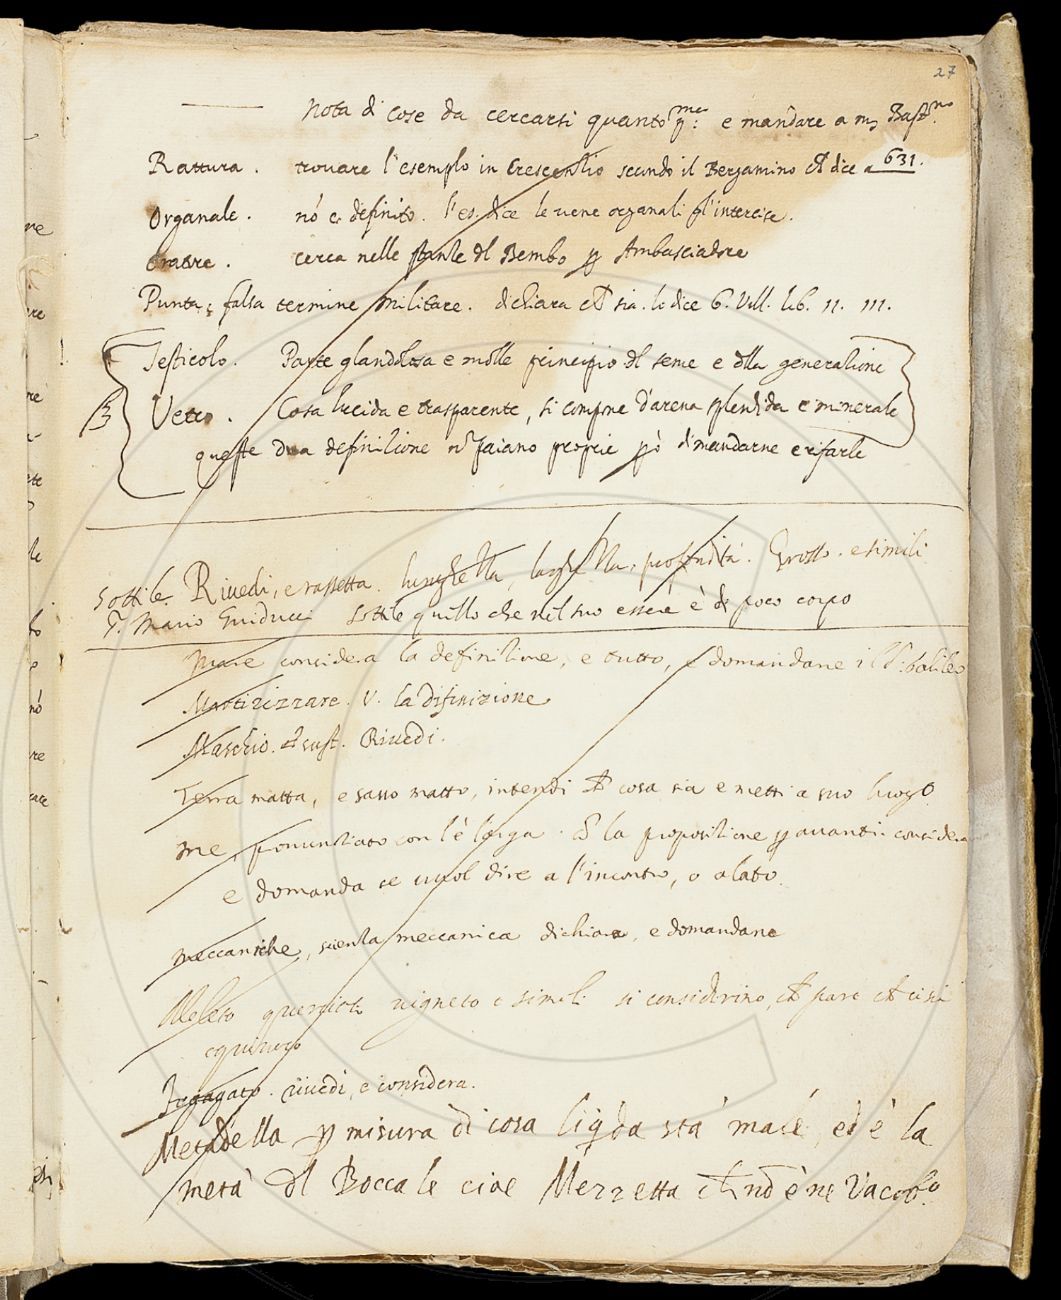 27
Nota di cose da cercarsi quanto p.ª e mandare a m. Bast.no
Rattura. trovare l'esemplo in Crescentio secondo il Bergamino ch dice a 631.
Organale. nō è definito. l'es. dice le vene organali gl'intercise.
Oratore. cerca nelle stanze dl Bembo p Ambasciadore
Punta, falsa termine militare. dichiara ch sia. lo dice G. Vill. lib. 11. 111.
Testicolo. Parte glandolosa e molle principio dl seme e dlla generatione
Vetro. Cosa lucida e trasparente, si compone d'arena splendida e minerale
queste dua definitione nō paiano proprie pò dimandarne e rifarle
Sottile. Rivedi, e rassetta. lunghetta, larghetta, profondità. Grosso. e simili
S. Mario Guiducci Sottile quello che nel suo essere è di poco corpo
Mare considera la definitione, e tutto, e domandane il S. Galileo
Martirizzare. V. la difinizione
Maschio. sust. Rivedi.
Terra matta, e sasso matto, intendi ch cosa sia e metti a suo luogo
Me, pronuntiato con l'è larga. la propositione p avanti. considera
e domanda se vuol dire a l'incontro, o alato.
Meccaniche, scienta meccanica dichiara, e domandane
Meleto querceto vigneto e simili si considerino, ch pare ch ci sia
equivoco
rivedi, e considera.
Metadella p misura di cosa liqda sta male, ed è la
metà dl Boccale cioe Mezzetta ch nō è ne Vocab.o